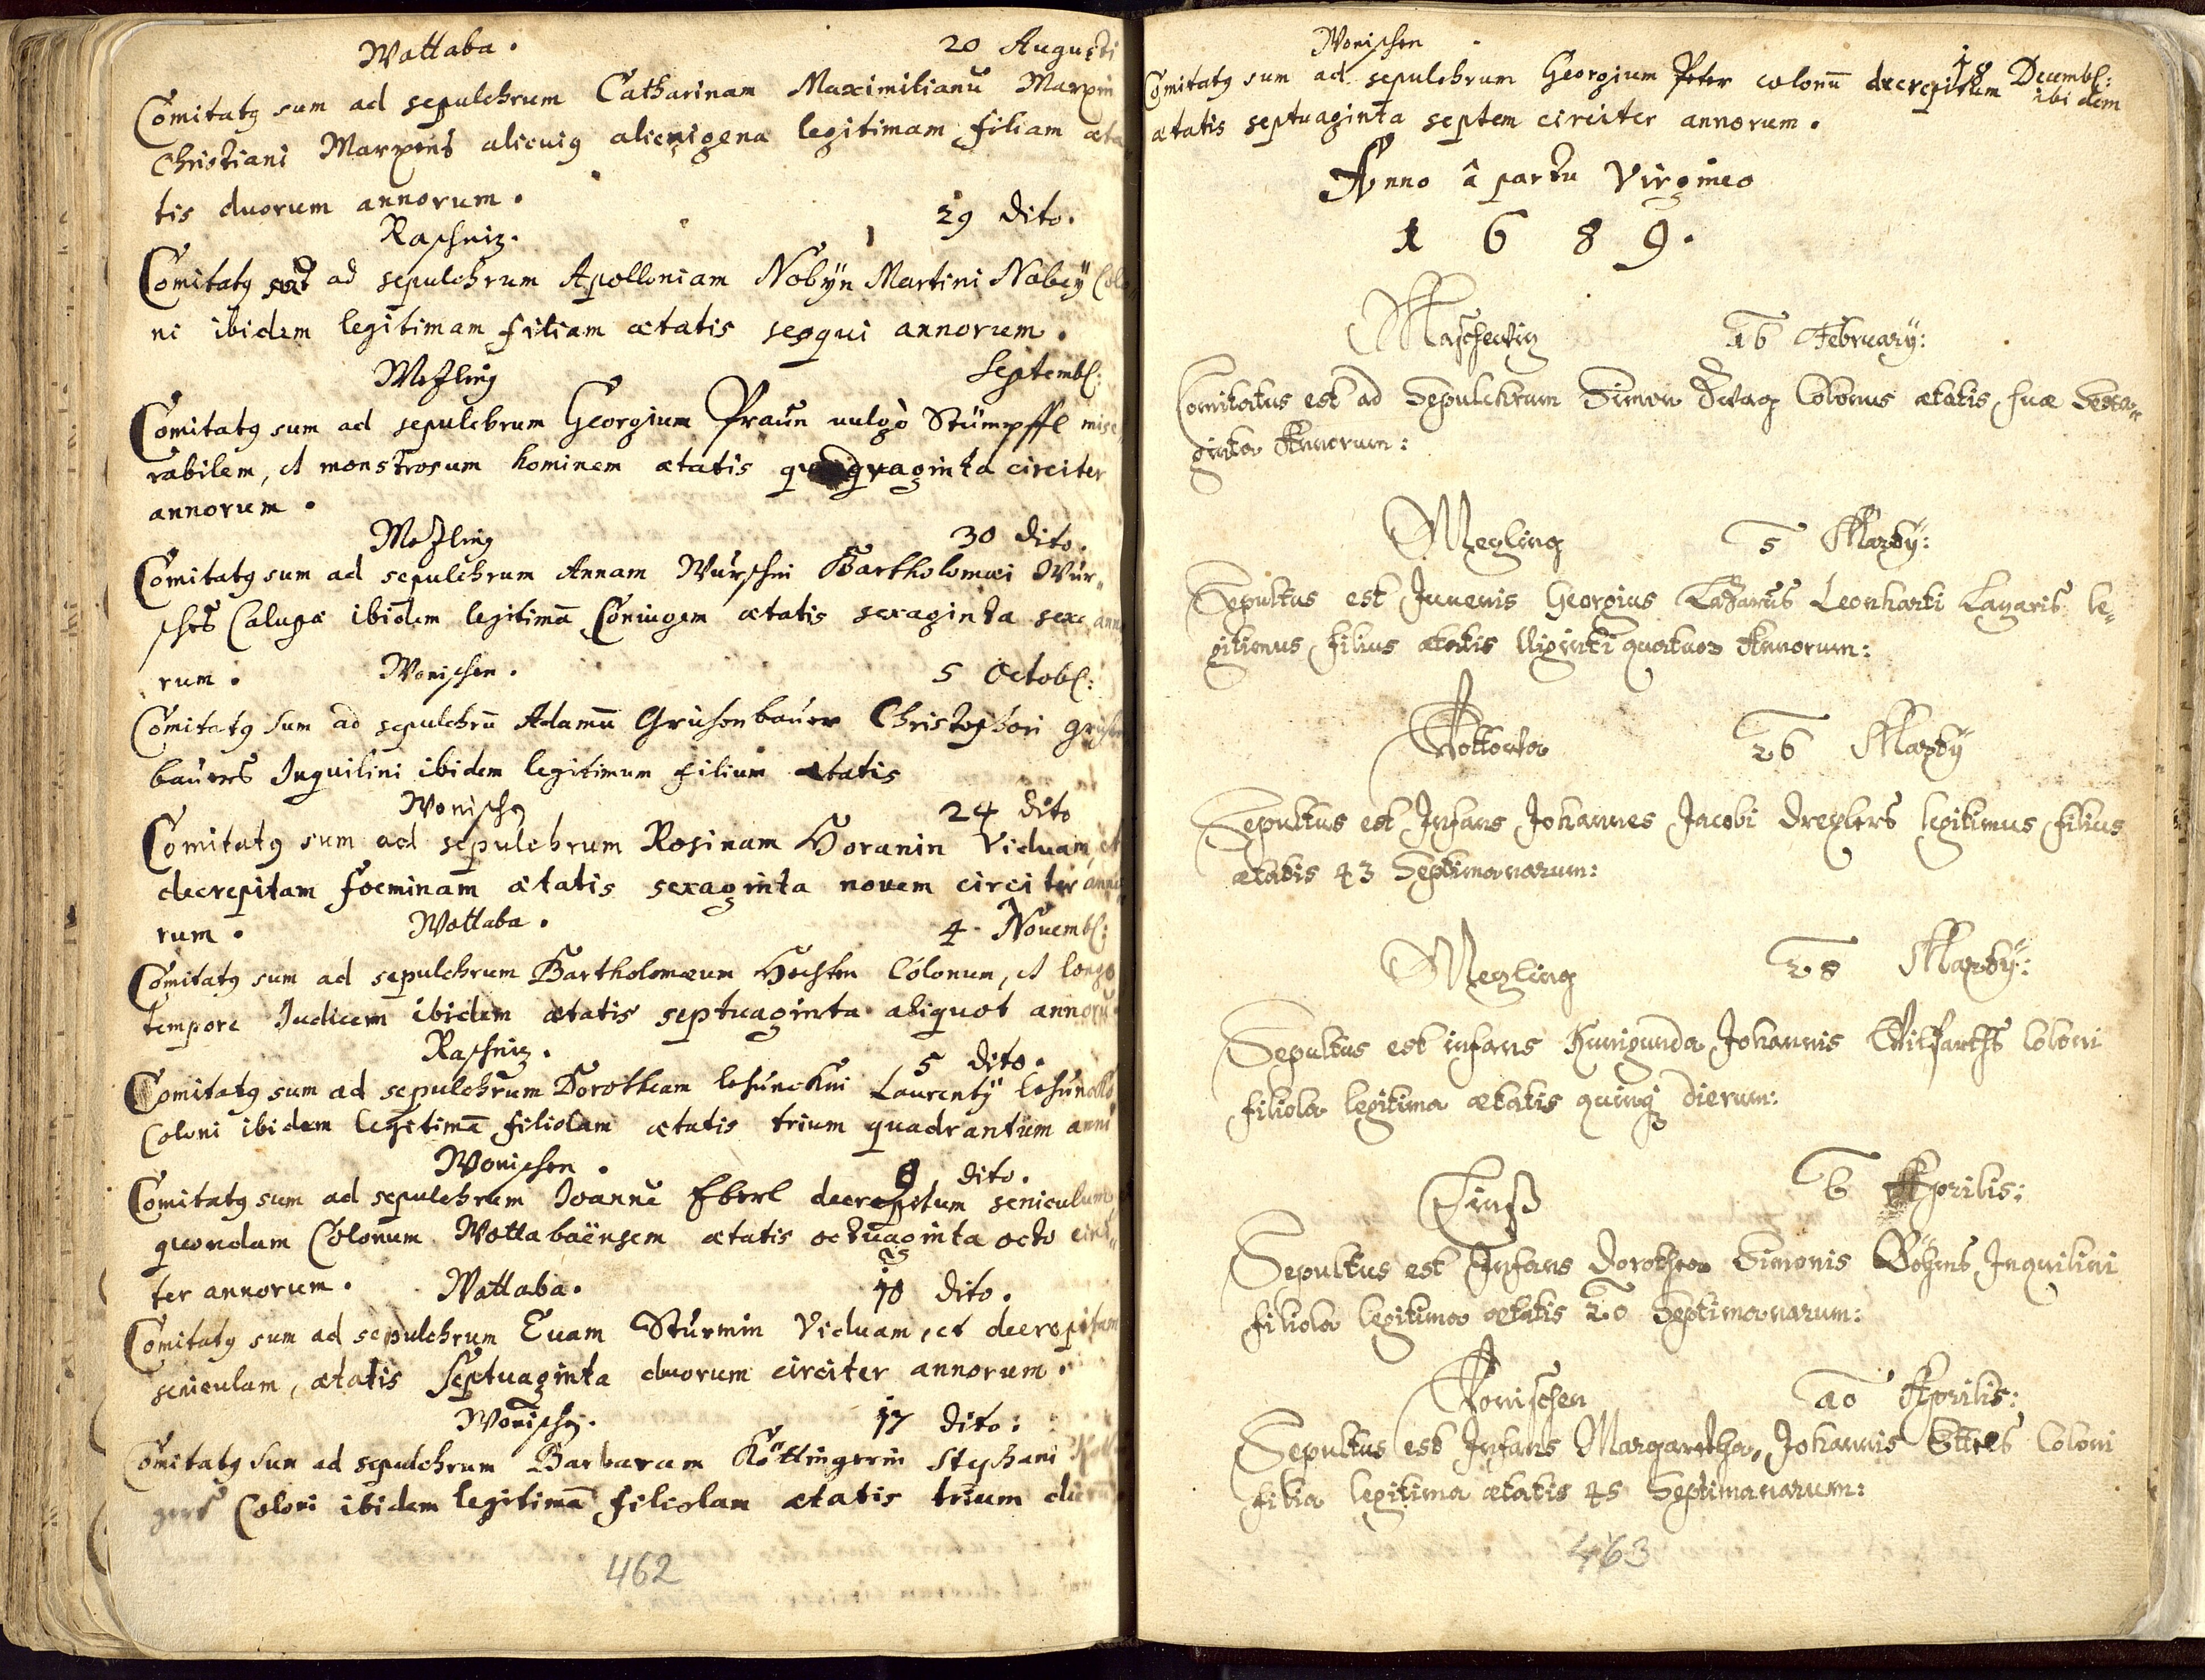 Wattaba. 20 Augusti
Comitatg sum ad sepulchrum Catharinam Maximilianū Marxin
Christiani Marxens alicuig alienigena legitimam filiam æta
tis duorum annorum.
Raschniz. 29 dito.
Comitatg sum ad sepulchrum Apolloniam Nobÿn Martini Nobeÿ Colo
ni ibidem legitimam filiam ætatis sesqui annorum.
Mezling Septemb:
Comitatg sum ad sepulchrum Georgium Praun uulgò Stümpffl mise
rabilem, et monstrosum hominem ætatis quadraginta circiter
annorum.
Mezling 30 dito.
Comitatg sum ad sepulchrum Annam Wurschin Bartholomæi Wur
sches Calupæ ibidem legitimā Coniugem ætatis sexaginta sex anno
rum. Wonischen. 5 Octob:
Comitatg sum ad sepulchrū Adamū Grusenbauer Christophori
bauers Inquilini ibidem legitimum filium ætatis
Wonischg 24 dito
Comitatg sum ad sepulchrum Rosinam Horanin Viduam, et
decrepitam foeminam ætatis sexaginta novem circiter anno
rum. Wottaba. 4. Novemb:
Comitatg sum ad sepulchrum Bartholomæum Hechten Colonum, et longo
tempore Iudicem ibidem ætatis septuaginta aliquot annorū
Raschniz. 5 dito.
Comitatg sum ad sepulchrum Dorotheam Lehünckni Laurentÿ
Coloni ibidem legitimā filiolam ætatis trium quadrantum anni
Wonischen. 8 dito.
Comitatg sum ad sepulchrum Joannē Eberl decrepitum seniculum
quondam Colonum Wottabaënsem ætatis octuaginta octo circi
ter annorum. Wattaba. 10 dito.
Comitatg sum ad sepulchrum Euam Sturmin Viduam, et decrepitam
seniculam, ætatis septuaginta duorum circiter annorum.
Wonischg. 17 dito:
Comitatg sum ad sepulchrum Barbaram Köttingerin Stephani
gers Coloni ibidem legitimā filiolam ætatis trium dierū
462
Wonischen 18 Decemb:
Comitatg sum ad sepulchrum Georgium Peter colonū decrepitum ibidem
ætatis septuaginta septem circiter annorum.
Anno â partu Virgineo
1689.
Raschewig 16 Februarÿ:
Comitatus est ad Sepulchrum Simon Colonus ætatis suæ Sexa-
ginta Annorum:
Mezling 5 Martÿ:
Sepultus est Juvenis Georgius Lazarus Leonharti Lazaris le-
gitimus filius ætatis Viginti quatuor Annorum:
Wottowa 26 Martÿ
Sepultus est Infans Johannes Jacobi Drexlers legitimus filius
ætatis 43 Septimanarum:
Mezling 28 Martÿ:
Sepultus est infans Kunigunda Johannis Wilfarths Coloni
filiola legitima ætatis quinq dierum:
Linß 6 Aprilis:
Sepultus est Infans Dorothea Simonis Böhms Inquilini
filiola legitima ætatis 20 Septimanarum:
Wonischen 10 Aprilis:
Sepultus est Infans Margaretha, Johannis Ettels Coloni
filia legitima ætatis 45 Septimanarum:
463